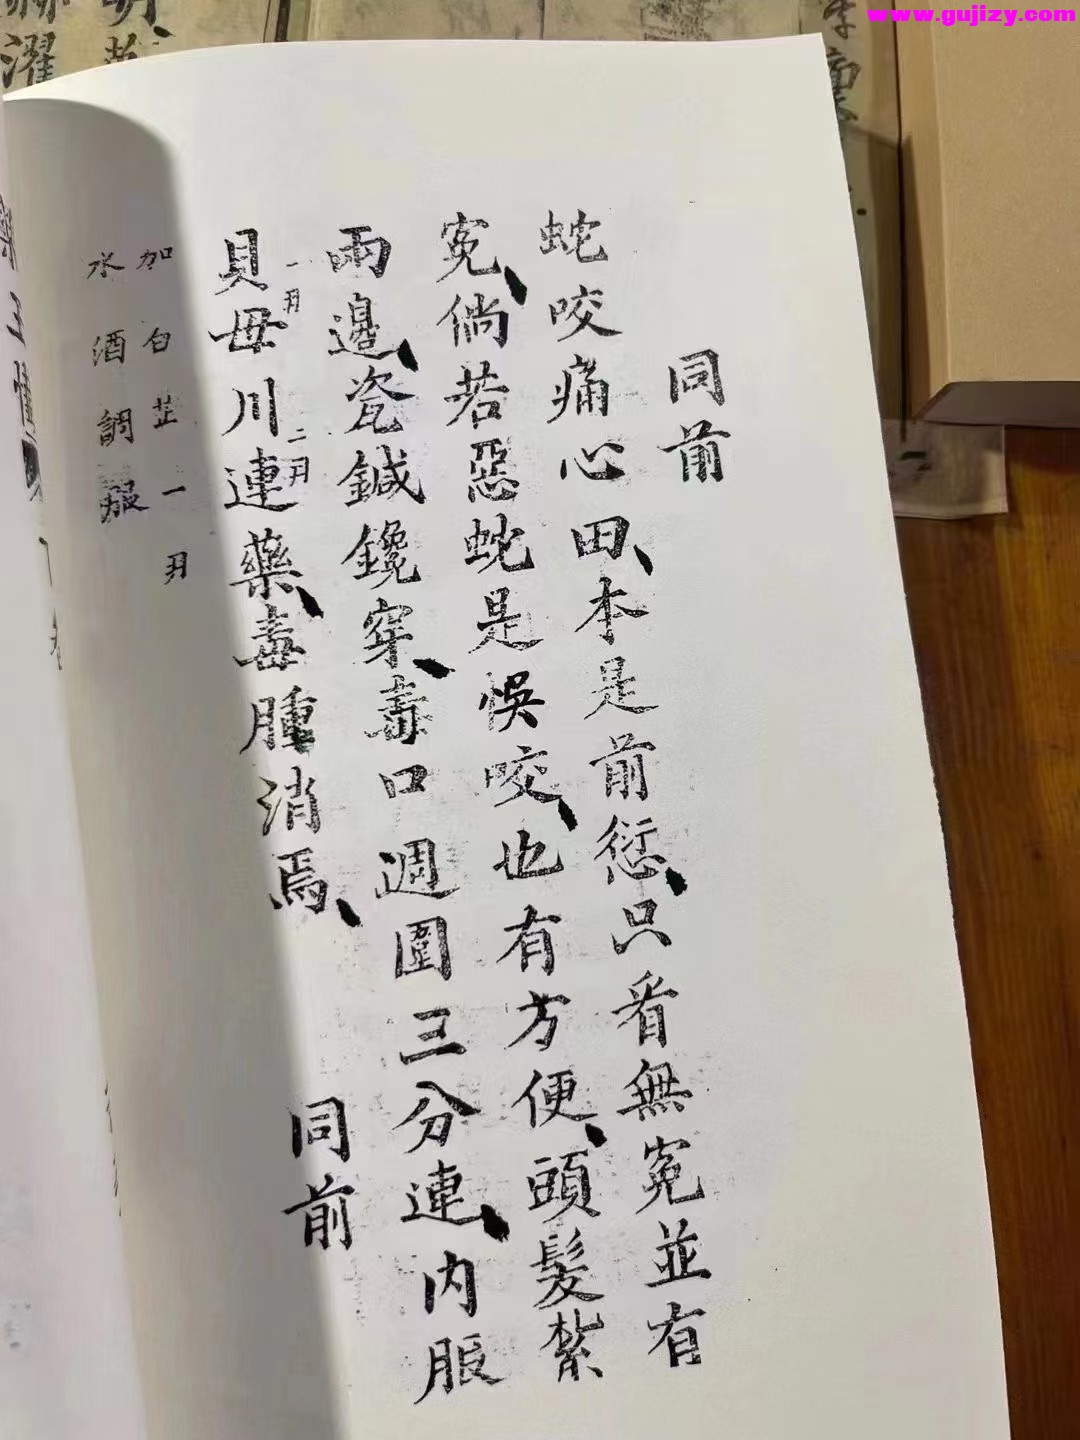 www.gujizy.com
同前
蛇咬痛心田、本是前愆、只看無冤並有
冤、倘若惡蛇是悞咬、也有方便、頭髮紮
兩邊、瓷鍼鑱穿、毒口週圍三分連、内服
貝母一両川連二両藥、毒腫消焉、 同前
加白芷一両
水酒調服